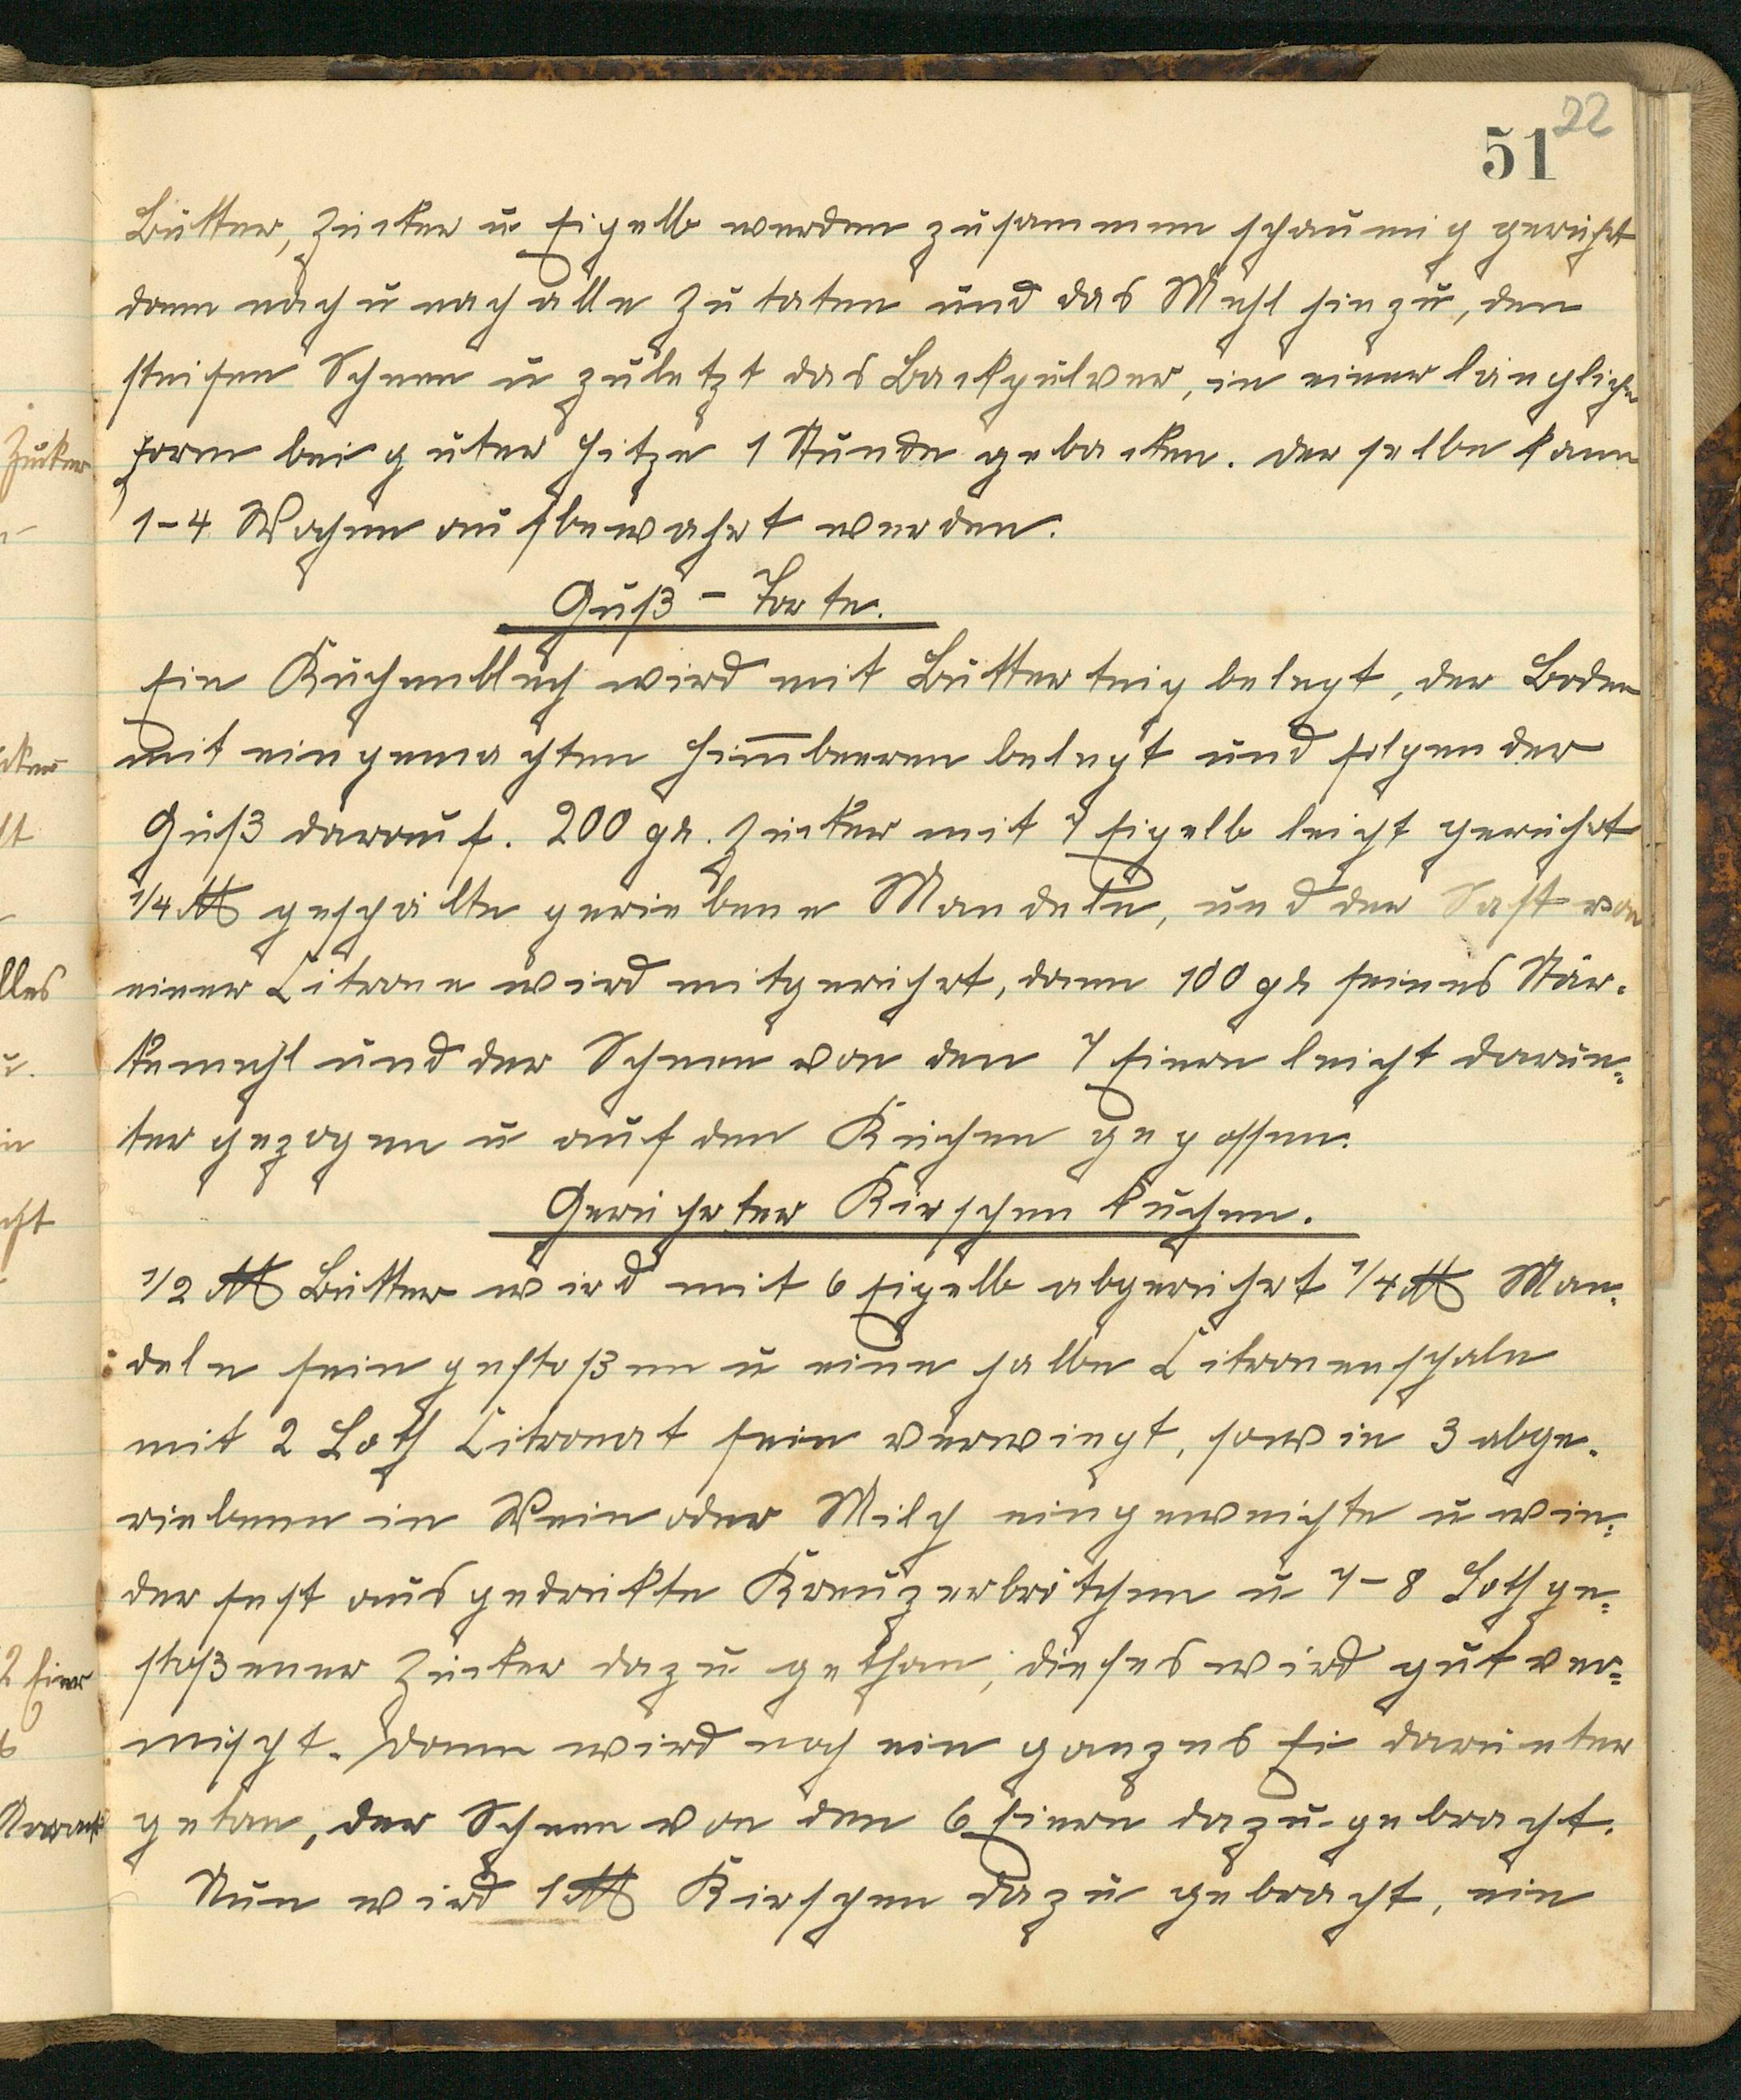 22
51
Butter, Zucker u Eigelb werden zusammen schaumig gerührt
dann nach u nach alle Zutaten und das Mehl hinzu, den
steifen Schnee u zuletzt das Backpulver, in einer längliche
Form bei guter Hitze 1 Stunde gebacken. derselbe kann
1-4 Wochen aufbewahrt werden.
Guß-Torte.
Ein Kuchenblech wird mit Butterteig belegt, der Boden
mit eingemachten Him̅beeren belegt und folgender
Guß darauf. 200 gr. Zucker mit 7 Eigelb leicht gerührt
1/4 ℔ geschälte geriebene Mandeln, und der Saft von
einer Citrone wird mitgerührt, dann 100 gr feines Stär-
kemehl und der Schnee von den 7 Eiern leicht darun-
ter gezogen u auf den Kuchen gegossen.
Gerührter Kirschenkuchen.
1/2 ℔ Butter wird mit 6 Eigelb abgerührt 1/4 ℔ Man-
deln fein gestoßen u eine halbe Citronenschale
mit 2 Loth Citronat fein verwiegt, sowie 3 abge-
riebene in Wein oder Milch eingeweichte u wie-
der fest ausgedrükte Kreuzerbrötchen u 7-8 Loth ge-
stoßener Zucker dazu gethan, dieses wird gut ver-
mischt. Dann wird noch ein ganzes Ei darunter
getan, der Schnee von den 6 Eiern dazu gebracht.
Nun wird 1 ℔ Kirschen dazu gebracht, ein
Zucker
lles
u.
in
2 Eier